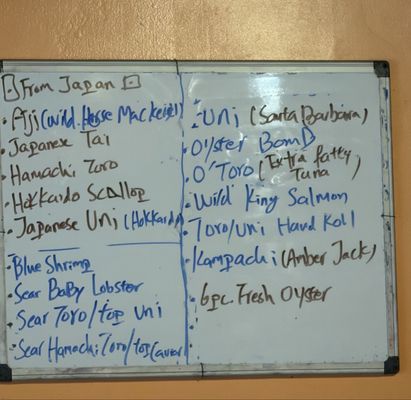 From Japan
• Aji (wild. Horse Mackerel)
• Japanese Tai
• Hamachi Toro
• Hokkaido Scallop
• Japanese Uni (Hokkaido)
• Blue Shrimp
• Sear Baby Lobster
• Sear Toro/top uni
• Sear Hamachi Toro/top Caviar
• Uni (Santa Barbara)
• Oyster Bomb
• O'Toro (Extra fatty Tuna)
• Wild King Salmon
• Toro/Uni Hand Roll
• Kampachi (Amber Jack)
• 6pc. Fresh Oyster